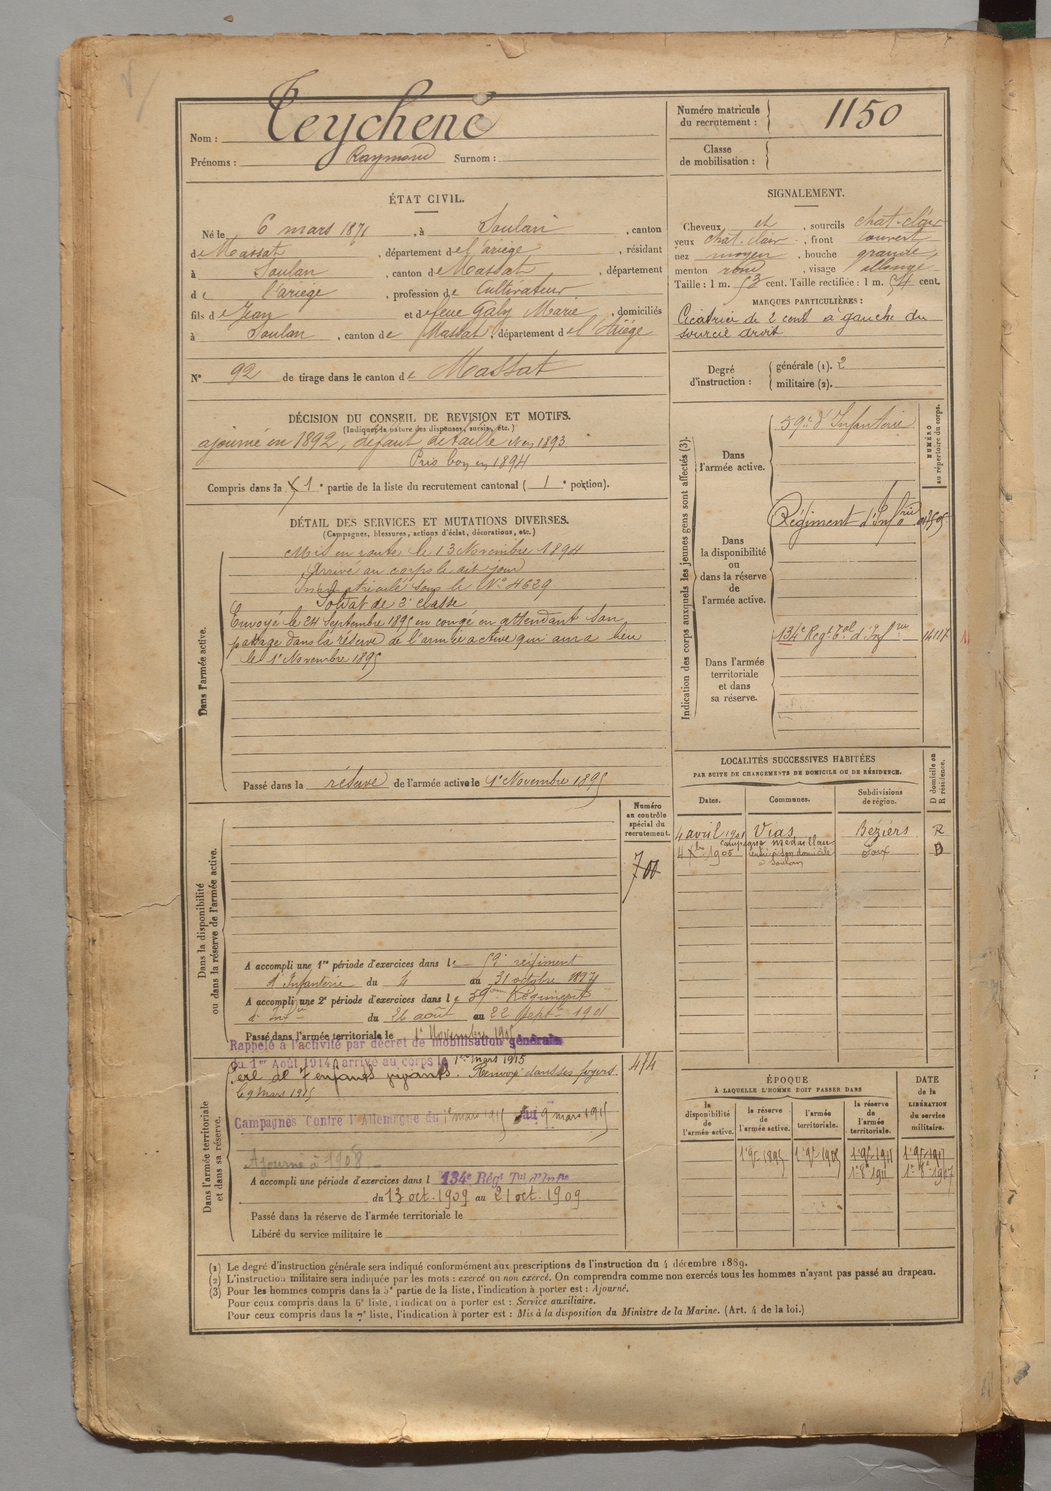 Nom : Teychené
Prénoms : Raymond Surnom :
Numéro matricule du recrutement : 1150
Classe de mobilisation :
ÉTAT CIVIL.
Né le 6 mars 1871, à Soulan, canton
de Massat, département de l'ariège, résidant
à Soulan, canton de Massat, département
de l'ariège, profession de Cultivateur
fils de Jean et de feue Galy Marie, domiciliés
à Soulan, canton de Massat, département de l'Ariége
N° 92 de tirage dans le canton de Massat
SIGNALEMENT.
Cheveux et, sourcils chat. clair
yeux chat. clair, front couvert
nez moyen, bouche grande,
menton rond, visage allongé
Taille : 1 m. 53 cent. Taille rectifiée : 1 m. 54 cent.
MARQUES PARTICULIÈRES :
Cicatrice de 2 cent a gauche du
sourcil droit
Degré d'instruction : générale (1). 2
militaire (2).
DÉCISION DU CONSEIL DE REVISION ET MOTIFS.
(Indiquer la nature des dispenses, sursis, etc.)
ajourné en 1892, défaut de taille 1893
Pris bon en 1894
Compris dans la 1e partie de la liste du recrutement cantonal (1e portion).
DÉTAIL DES SERVICES ET MUTATIONS DIVERSES.
(Campagnes, blessures, actions d'éclat, décorations, etc.)
Dans l'armée active.
Mis en route le 13 Novembre 1894
Arrivé au corps le dit jour
Immatriculé sous le N° 4639
Soldat de 2e classe
Envoyé le 24 Septembre 1895 en congé en attendant son
passage dans la réserve de l'armée active qui aura lieu
le 1er Novembre 1895
Passé dans la réserve de l'armée active le 1er Novembre 1895
Indication des corps auxquels les jeunes gens sont affectés (3).
NUMÉRO au répertoire du corps.
Dans l'armée active.
59e d'Infanterie
Dans la disponibilité ou dans la réserve de l'armée active.
Régiment d'Infrie
Dans l'armée territoriale et dans sa réserve.
134e Régt Tal d'Infrie 14117
LOCALITÉS SUCCESSIVES HABITÉES
PAR SUITE DE CHANGEMENTS DE DOMICILE OU DE RÉSIDENCE.
Dates. Communes. Subdivisions de région. D domicile ou R résidence.
4 avril 1901 Vias Béziers R
campagne medaillan
4 Xbre 1905 domicile à Soulan Foix D
Numéro au contrôle spécial du recrutement.
700
Dans la disponibilité ou dans la réserve de l'armée active.
A accompli une 1re période d'exercices dans le 59e régiment
d'Infanterie du 4 au 31 octobre 1897
A accompli une 2e période d'exercices dans le 59ème Régiment
d'Infie du 26 août au 22 Septre 1901
Passé dans l'armée territoriale le 1er Novembre 1905
Rappelé à l'activité par décret de mobilisation générale
du 1er Août 1914, arrivé au corps le 1er mars 1915
Père de 7 enfants vivants. Renvoyé dans ses foyers
le 9 mars 1915
474
Dans l'armée territoriale et dans sa réserve.
Campagnes Contre l'Allemagne du 1er mars 1915 au 9 mars 1915
Ajourné à 1908
A accompli une période d'exercices dans l 134e Régt Tal d'Infie
du 13 oct. 1909 au 21 oct. 1909
Passé dans la réserve de l'armée territoriale le
Libéré du service militaire le
ÉPOQUE
À LAQUELLE L'HOMME DOIT PASSER DANS
la disponibilité de l'armée active. la réserve de l'armée active. l'armée territoriale. la réserve de l'armée territoriale.
DATE de la LIBÉRATION du service militaire.
1er 9bre 1895 1er 9bre 1905 1er 9bre 1911 1er 9bre 1917
(1) Le degré d'instruction générale sera indiqué conformément aux prescriptions de l'instruction du 4 décembre 1889.
(2) L'instruction militaire sera indiquée par les mots : exercé ou non exercé. On comprendra comme non exercés tous les hommes n'ayant pas passé au drapeau.
(3) Pour les hommes compris dans la 5e partie de la liste, l'indication à porter est : Ajourné.
Pour ceux compris dans la 6e liste, l'indication à porter est : Service auxiliaire.
Pour ceux compris dans la 7e liste, l'indication à porter est : Mis à la disposition du Ministre de la Marine. (Art. 4 de la loi.)